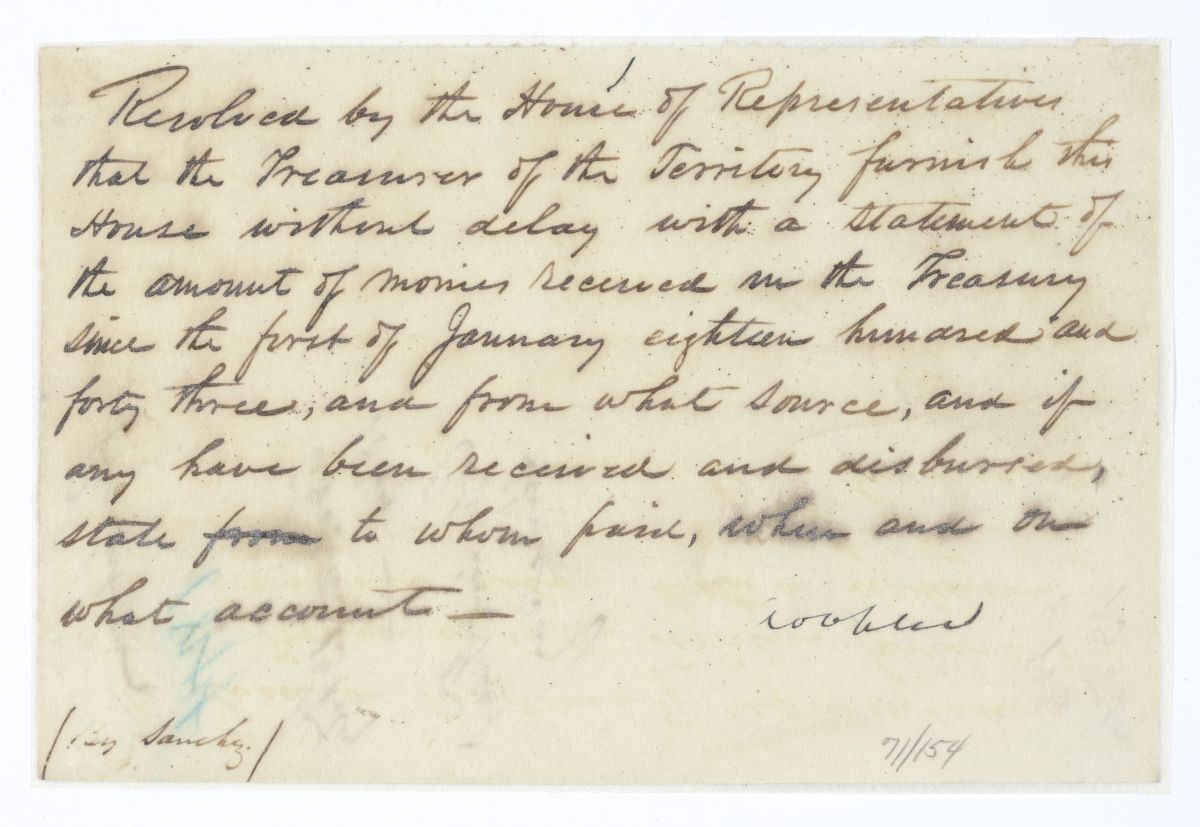 Resolved by the House of Representatives
that the Treasurer of the Territory furnish this
House without delay with a statement of
the amount of monies received in the Treasury
since the first of January eighteen hundred and
forty three, and from what source, and if
any have been received and disbursed,
state from to whom paid, when and on
what account —
(by Sanchez)
71/154